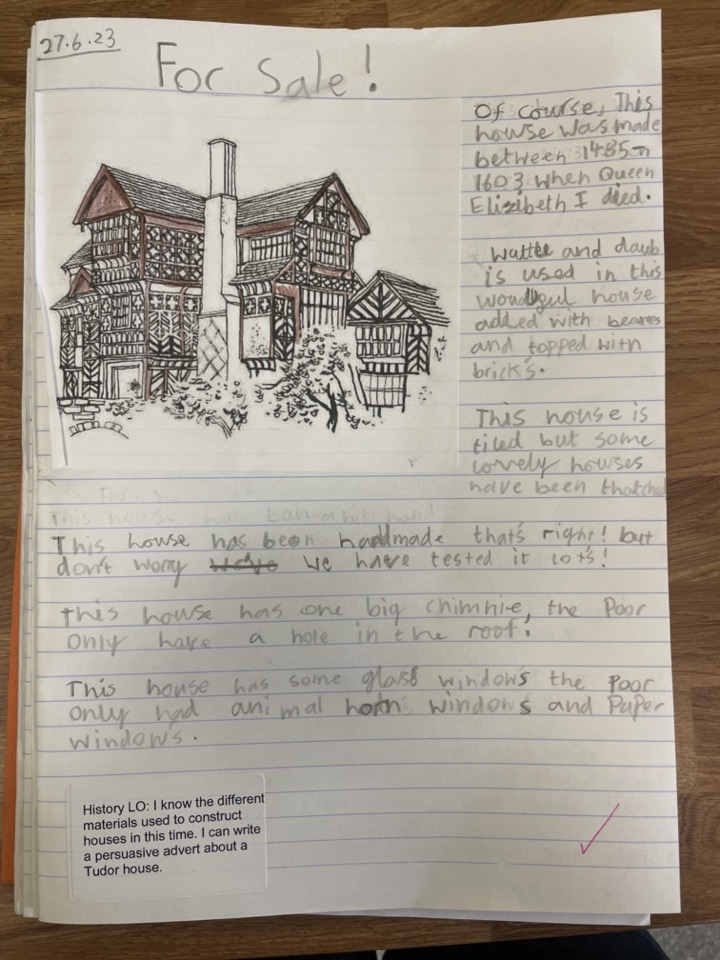 27.6.23
For Sale!
Of course, This
house was made
between 1485 -
1603 when Queen
Elizibeth I died.
wattle and daub
is used in this
house
added with beames
and topped with
brick's.
This house is
tiled but some
lovely houses
have been thatched
This house has been handmade that's right! but
don't worry we have tested it lots!
This house has one big chimnie, the Poor
only have a hole in the roof.
This house has some glass windows the Poor
only had animal horn windows and Paper
windows.
History LO: I know the different
materials used to construct
houses in this time. I can write
a persuasive advert about a
Tudor house.